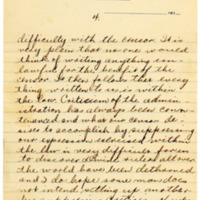 4.
difficulty with the censor. It is
very plain that no one would
think of writing anything un-
lawful for the benefit of the
censor. So it follows that every
thing written to us is within
the law. Criticism of the admin-
istration has always been coun-
tenanced and what our censor de-
sires to accomplish by suppressing
our expression exercised within
the law is very difficult for us
to discover. Divine rulers all over
the world have been dethroned
and I do hope some one does
not intend setting up another